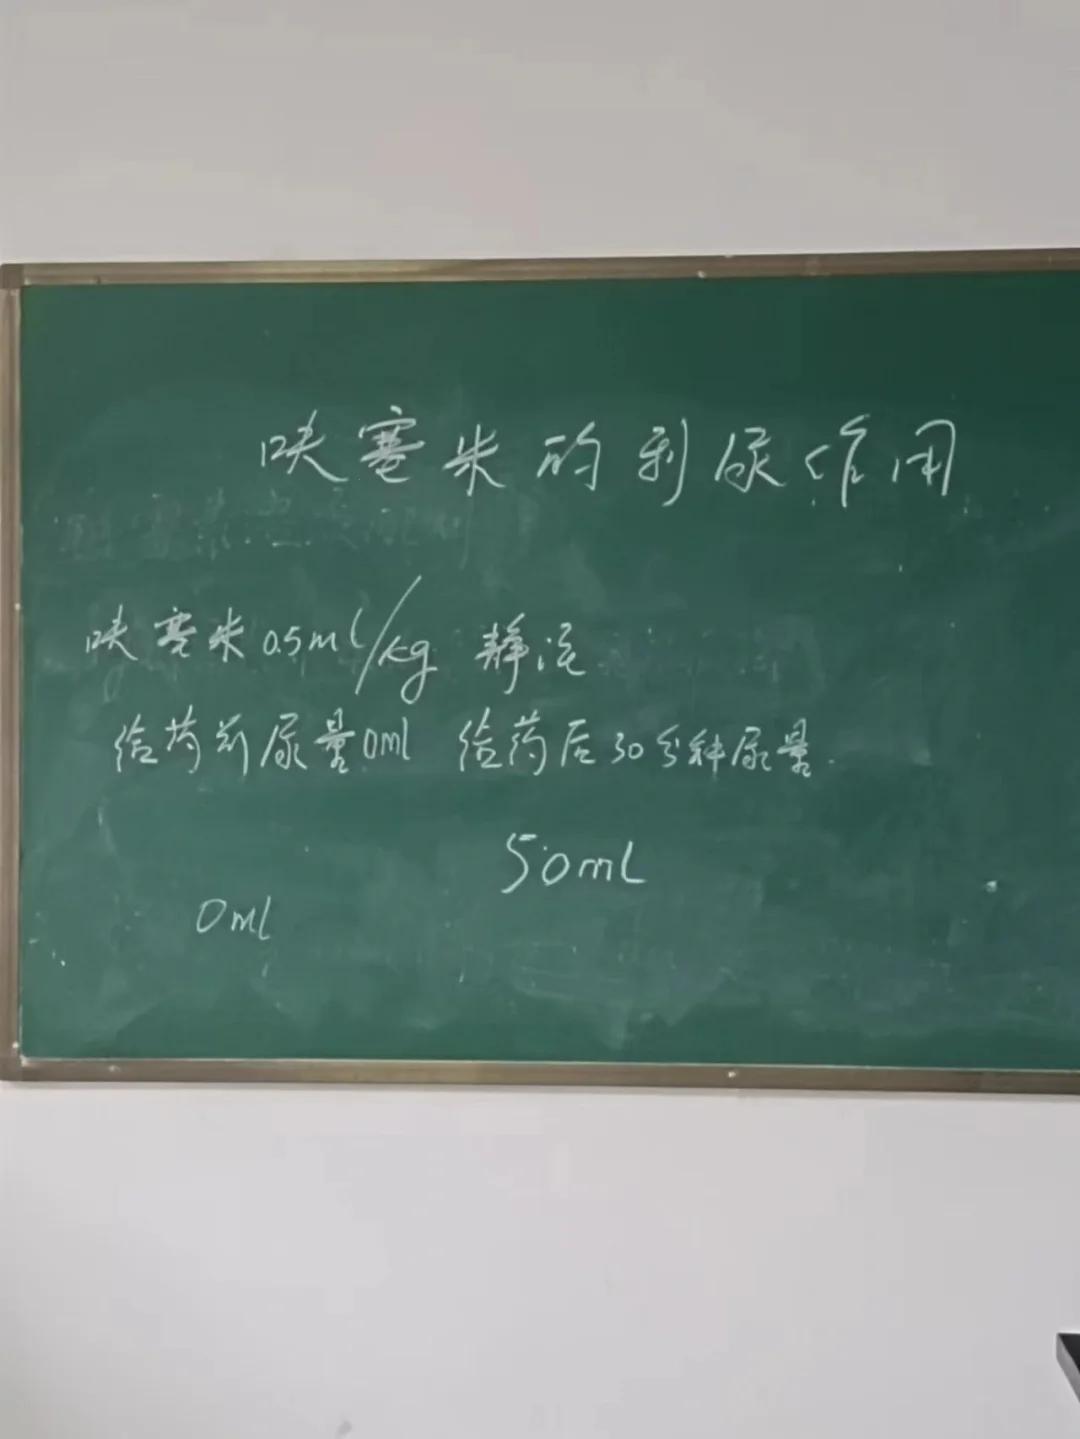 呋塞米的利尿作用
呋塞米0.5ml/kg 静注
给药前尿量0ml 给药后30分种尿量.
50ml
0ml